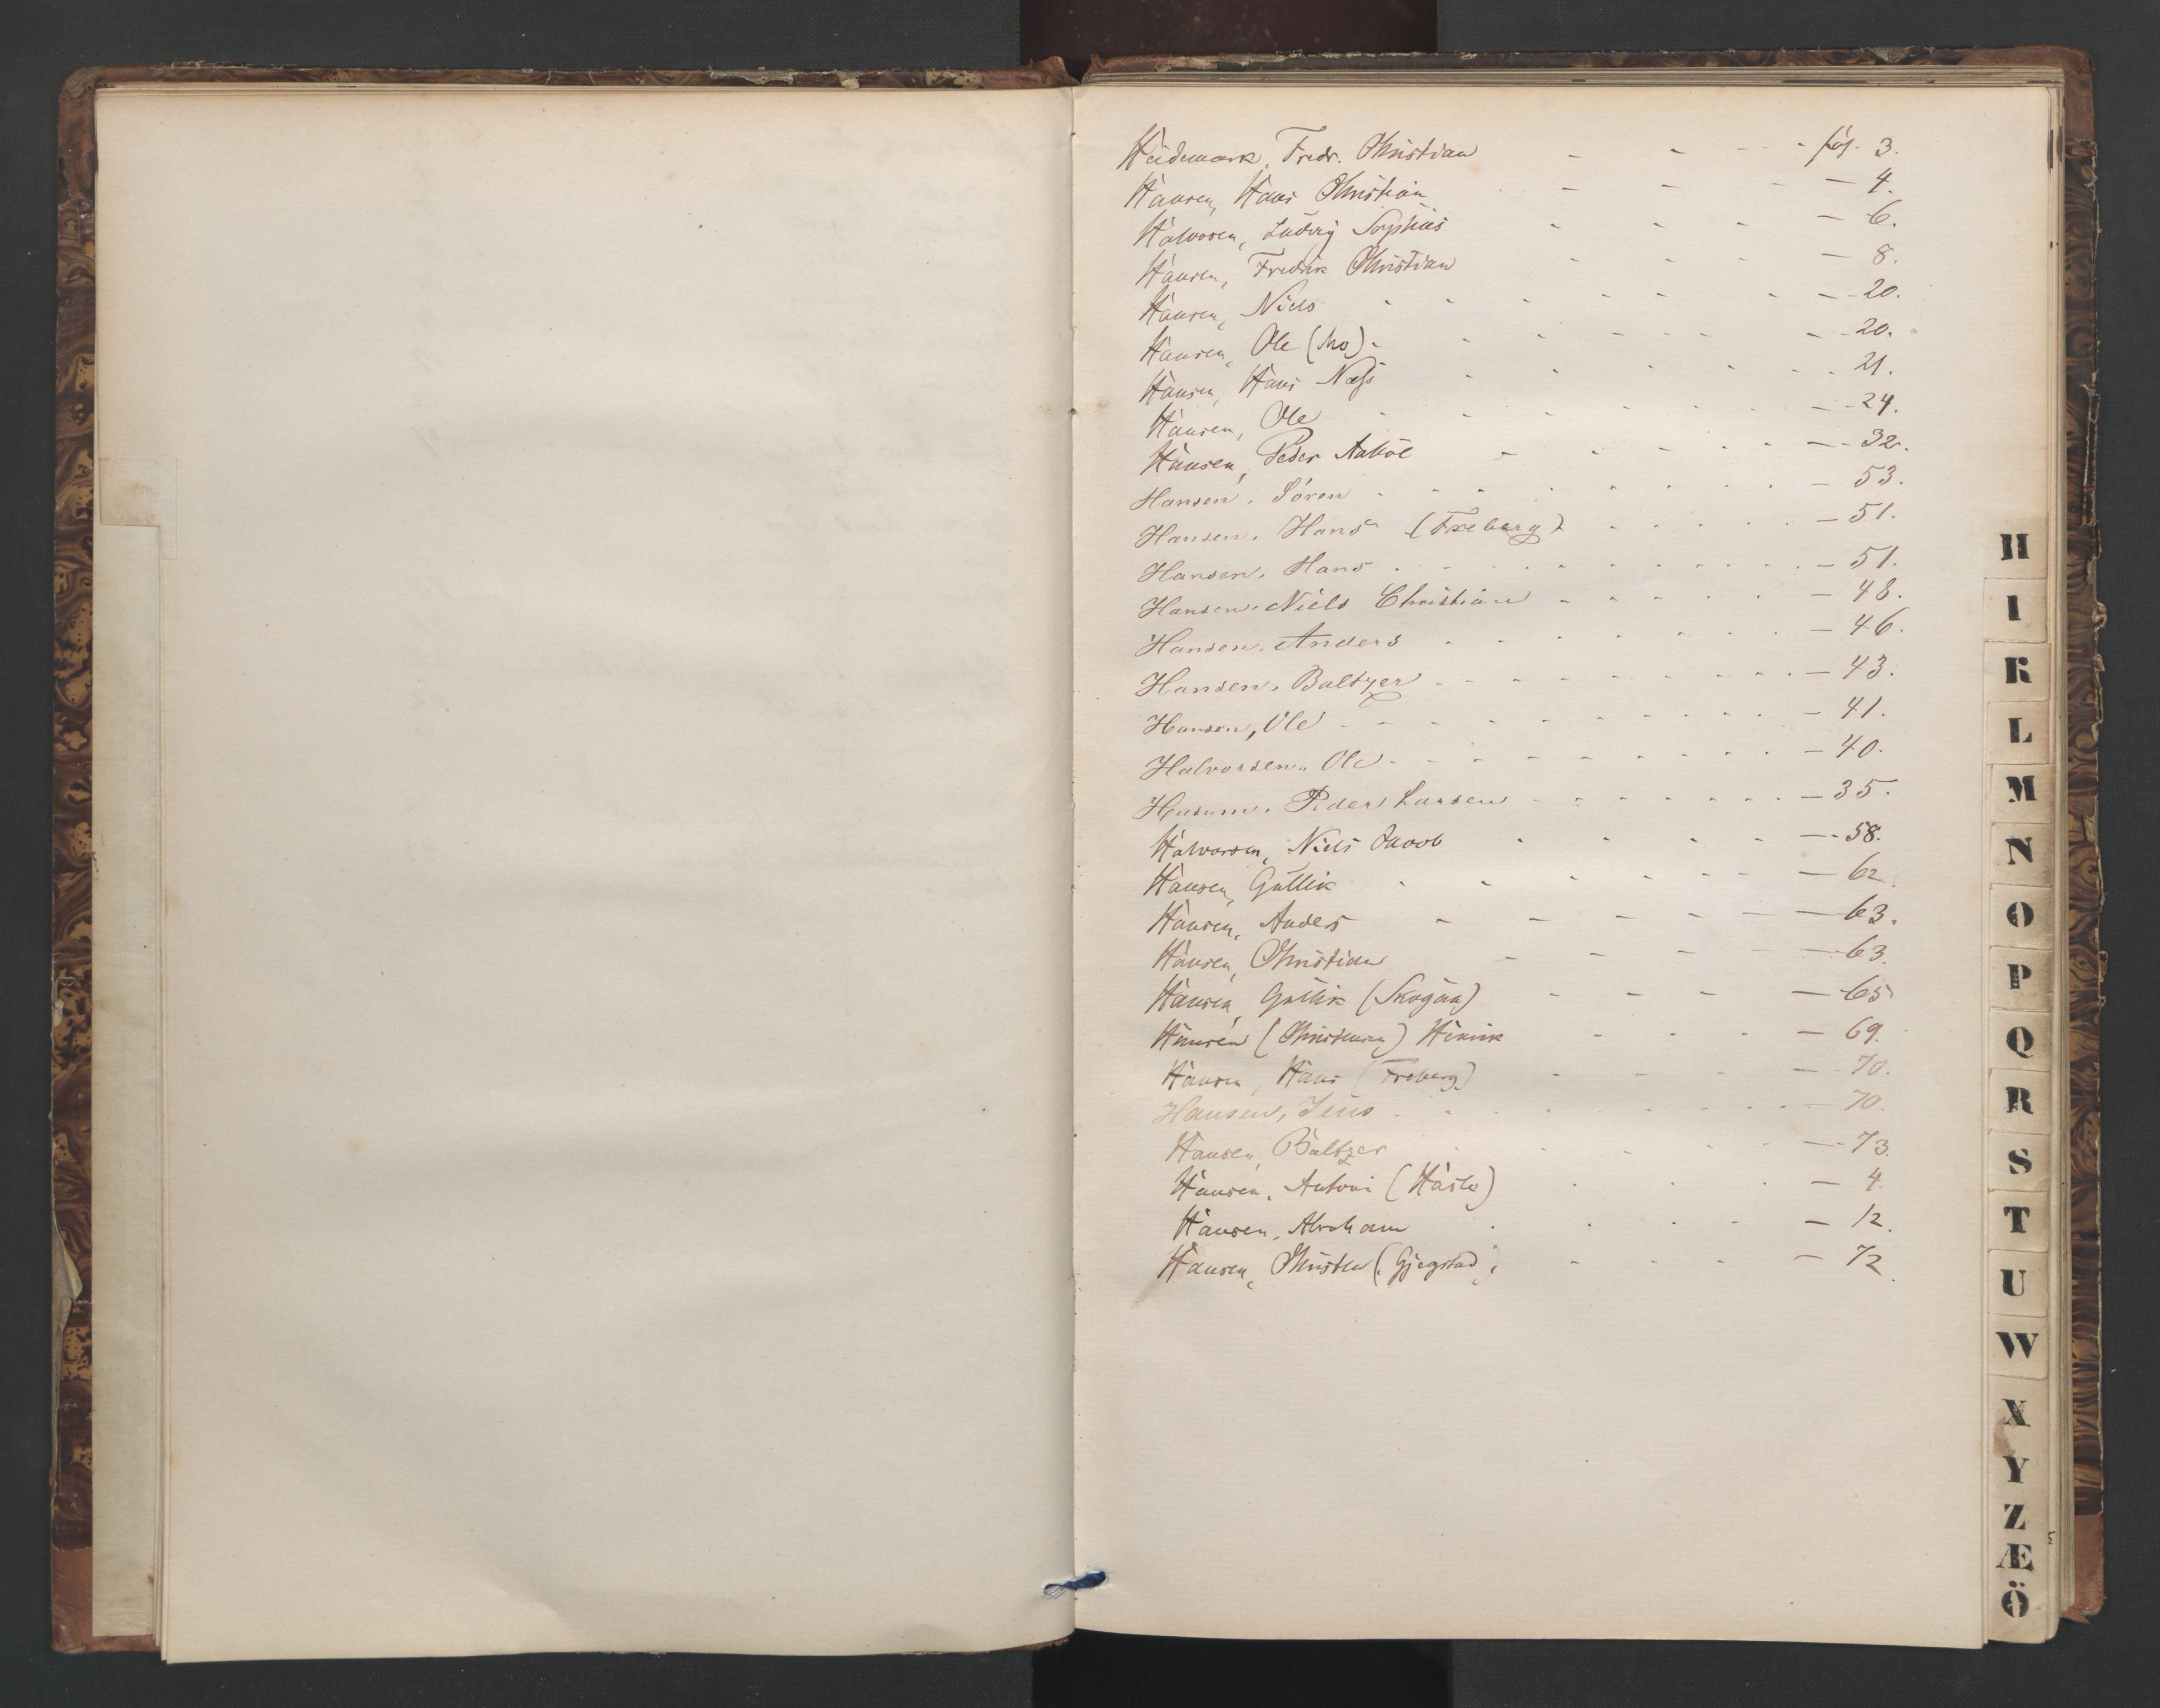 Heidemark, Fredr. Christian - - - - pag. 3.
Hansen, Hans Christian - - - - 4.
Halvorsen, Ludvig Sophus - - - - 6.
Hansen, Fredrik Christian - - - - 8.
Hansen, Niels - - - - - - 20.
Hansen, Ole (Mo) - - - - - - 20.
Hansen, Hans Næss - - - - - 21.
Hansen, Ole - - - - - - 24.
Hansen, Peder - - - - - 32.
Hansen, Sören - - - - - - 53.
Hansen, Hans (Freberg) - - - - - 51.
Hansen, Hans - - - - - - 51.
Hansen, Niels Christian - - - - - 48.
Hansen, Anders - - - - - - 46.
Hansen, Baltzer - - - - - - 43.
Hansen, Ole - - - - - - 41.
Halvorsen, Ole - - - - - - 40.
Husum, Peder Larsen - - - - - - 35.
Halvorsen, Niels Jacob - - - - - 58.
Hansen, Gullik - - - - - - 62.
Hansen, Anders - - - - - - 63.
Hansen, Christian - - - - 63.
Hansen, Gullik (Skogan) - - - - 65
Hansen (Christensen) Henrik - - - 69.
Hansen, Hans (Freberg) - - - - 70.
Hansen, Jens - - - - - 70.
Hansen, Baltzer - - - - - 73.
Hansen, Antoni (Hasle) - - - - 4.
Hansen, Abraham - - - - - 12.
Hansen, Christen (Gjegstad) - - - - 72.
H
I
K
L
M
N
O
P
Q
R
S
T
U
W
X
Y
Z
Æ
Ö